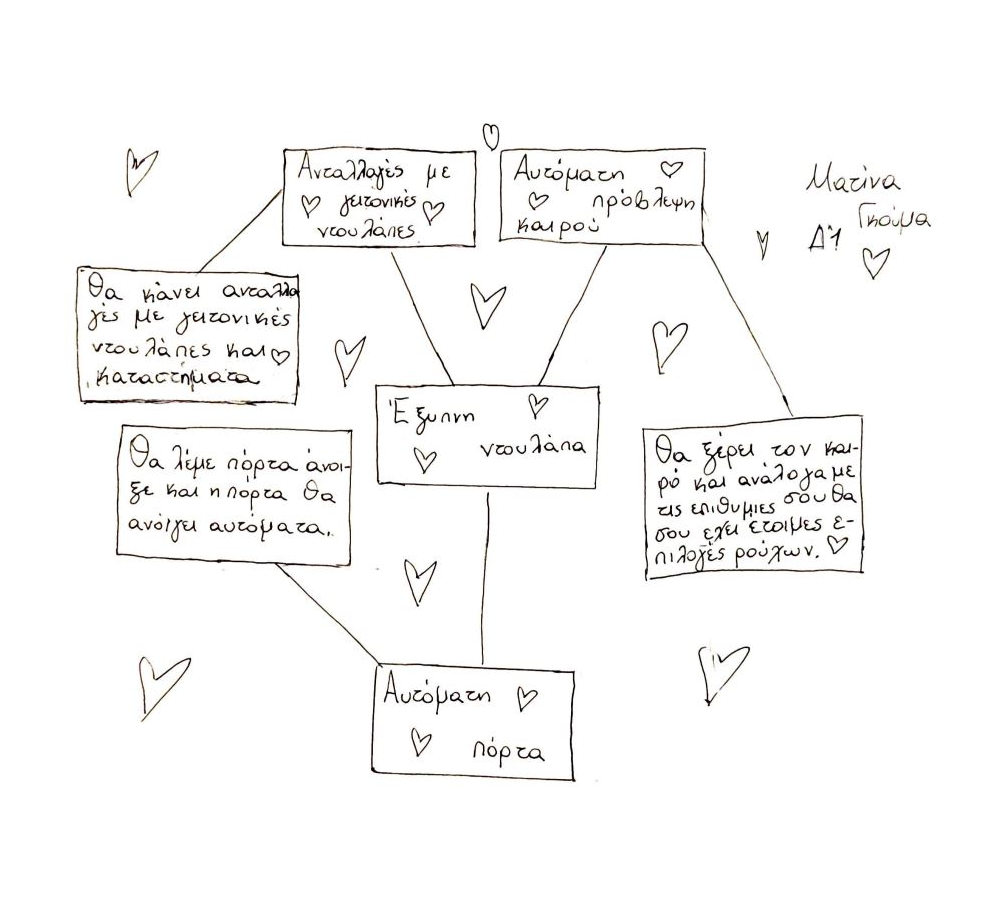 Ανταλλαγές με
γειτονικές
ντουλάπες
Αυτόματη
πρόβλεψη
καιρού
Ματίνα
Γκούμα
Δ'1
Θα κάνει ανταλλα
γές με γειτονικές
ντουλάπες και
καταστήματα
Έξυπνη
ντουλάπα
Θα λέμε πόρτα άνοι-
ξε και η πόρτα θα
ανόιγει αυτόματα.
Θα ξέρει τον και-
ρό και ανάλογα με
τις επιθυμιες σου θα
σου εχει έτοιμες ε-
πιλογές ρούχων.
Αυτόματη
πόρτα